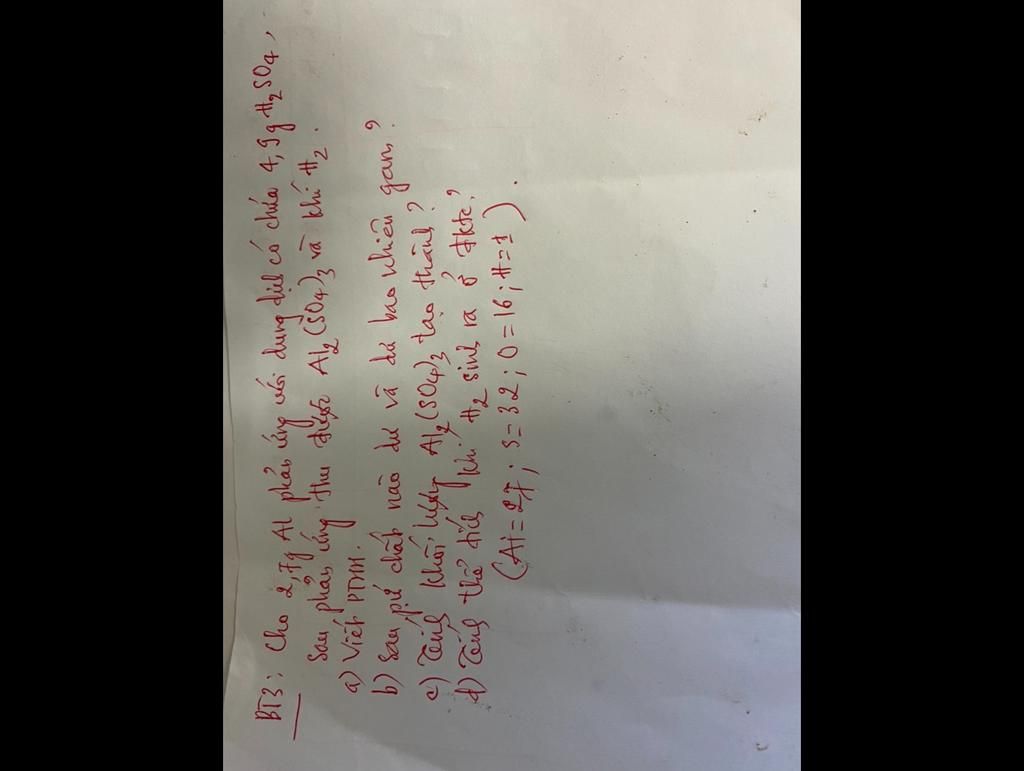 BT3: Cho 2,7g Al phản ứng với dung dịch có chứa 4,9g H2SO4,
sau phản ứng thu được Al2(SO4)3 và khí H2.
a) Viết PTHH.
b) Sau pứ chất nào dư và dư bao nhiêu gam?
c) Tính khối lượng Al2(SO4)3 tạo thành?
d) Tính thể tích khí H2 sinh ra ở đktc?
(Al=27; S=32; O=16; H=1).